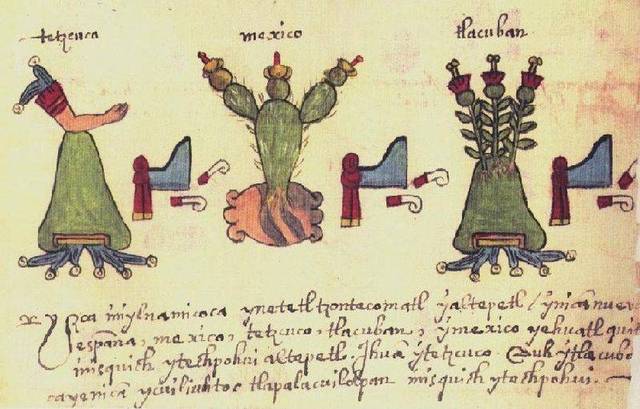 tetzcuco mexico tlacuban
Yzca iniylnamicoca ynetetl tzontecomatl ỹaltepetl / ynican nueva
españa, mexico, tetzcuco, tlacuban, ỹmexico yehuatl
inisquich ytechpohui altepetl. Jhuã ỹtetzcuco. Auh ỹtlacuba
ca yenicã ycuiliuhtoc tlapalacuilolpan inisquich ytechpohui.